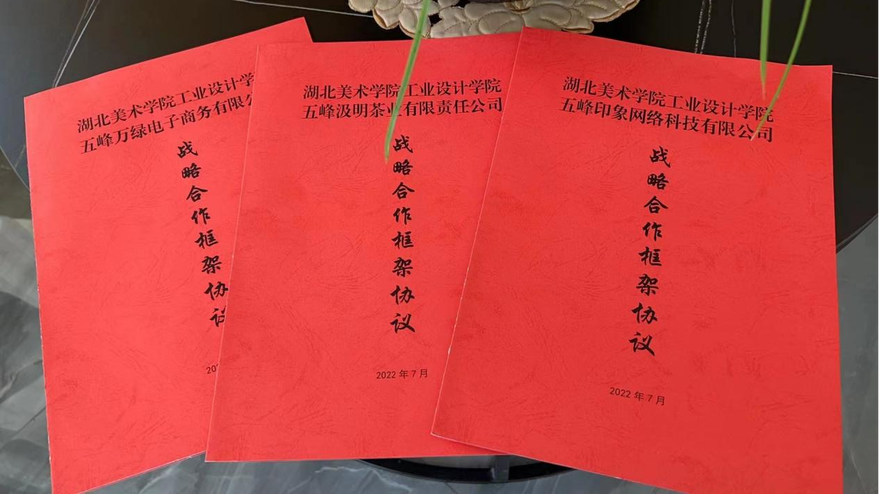 湖北美术学院工业设计学
五峰万绿电子商务有限公
战略合作框架协议
20
湖北美术学院工业设计学院
五峰汲明茶业有限责任公司
战略合作框架协议
2022年7月
湖北美术学院工业设计学院
五峰印象网络科技有限公司
战略合作框架协议
2022年7月